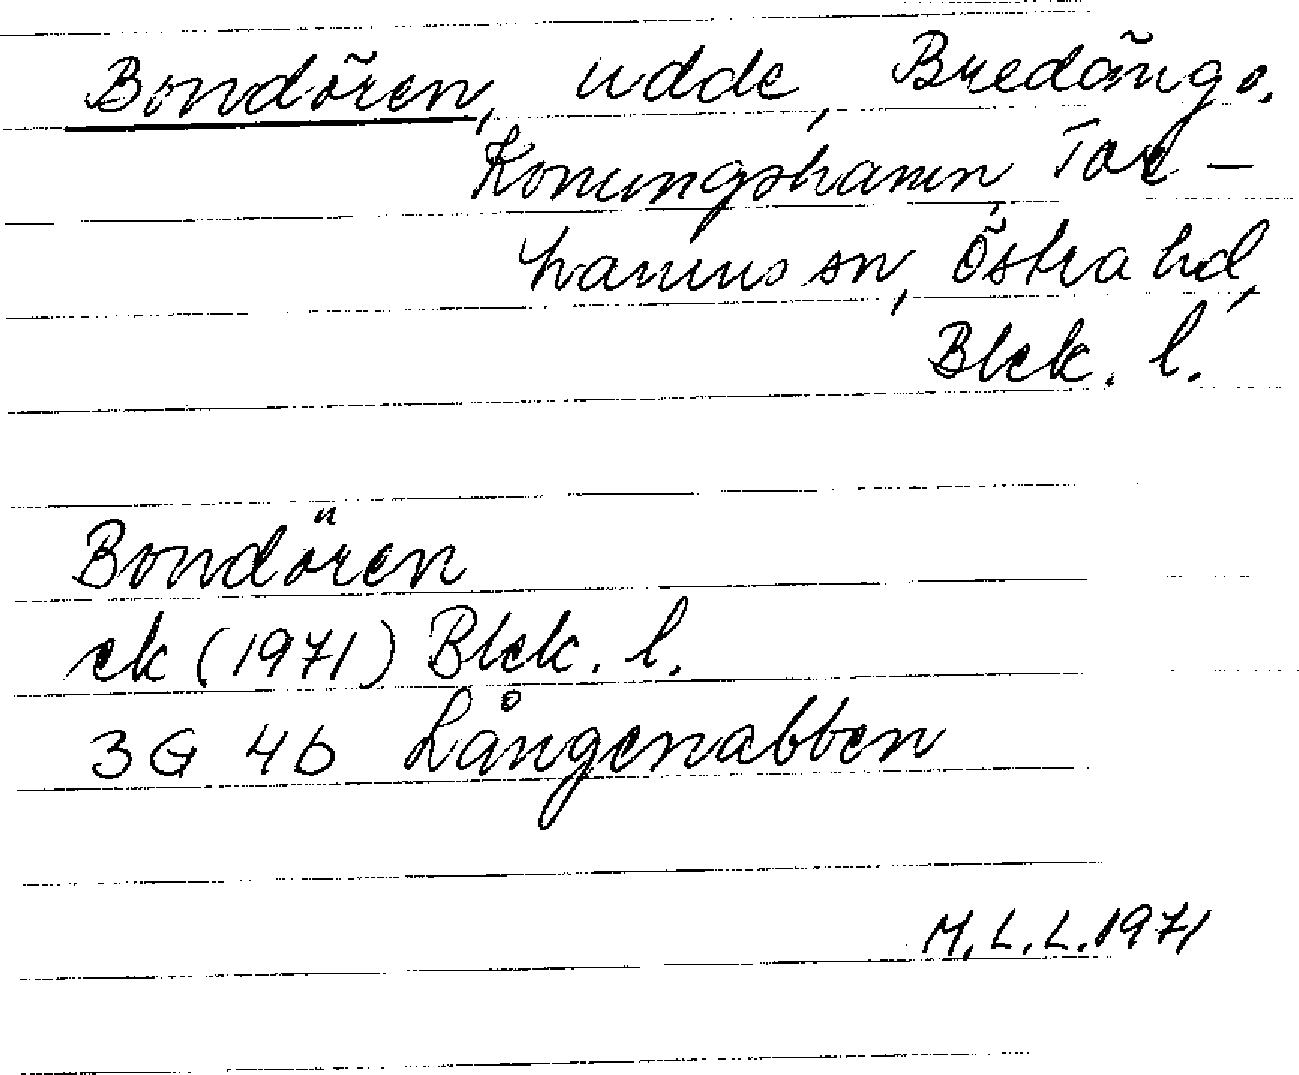 Bondören, udde, Bredäng o.
Konungshamn, Tor-
hamns sn, Östra hd,
Blek. l.
Bondören
ek (1971) Blek. l.
3G 4b Långenabben
M.L.L. 1971